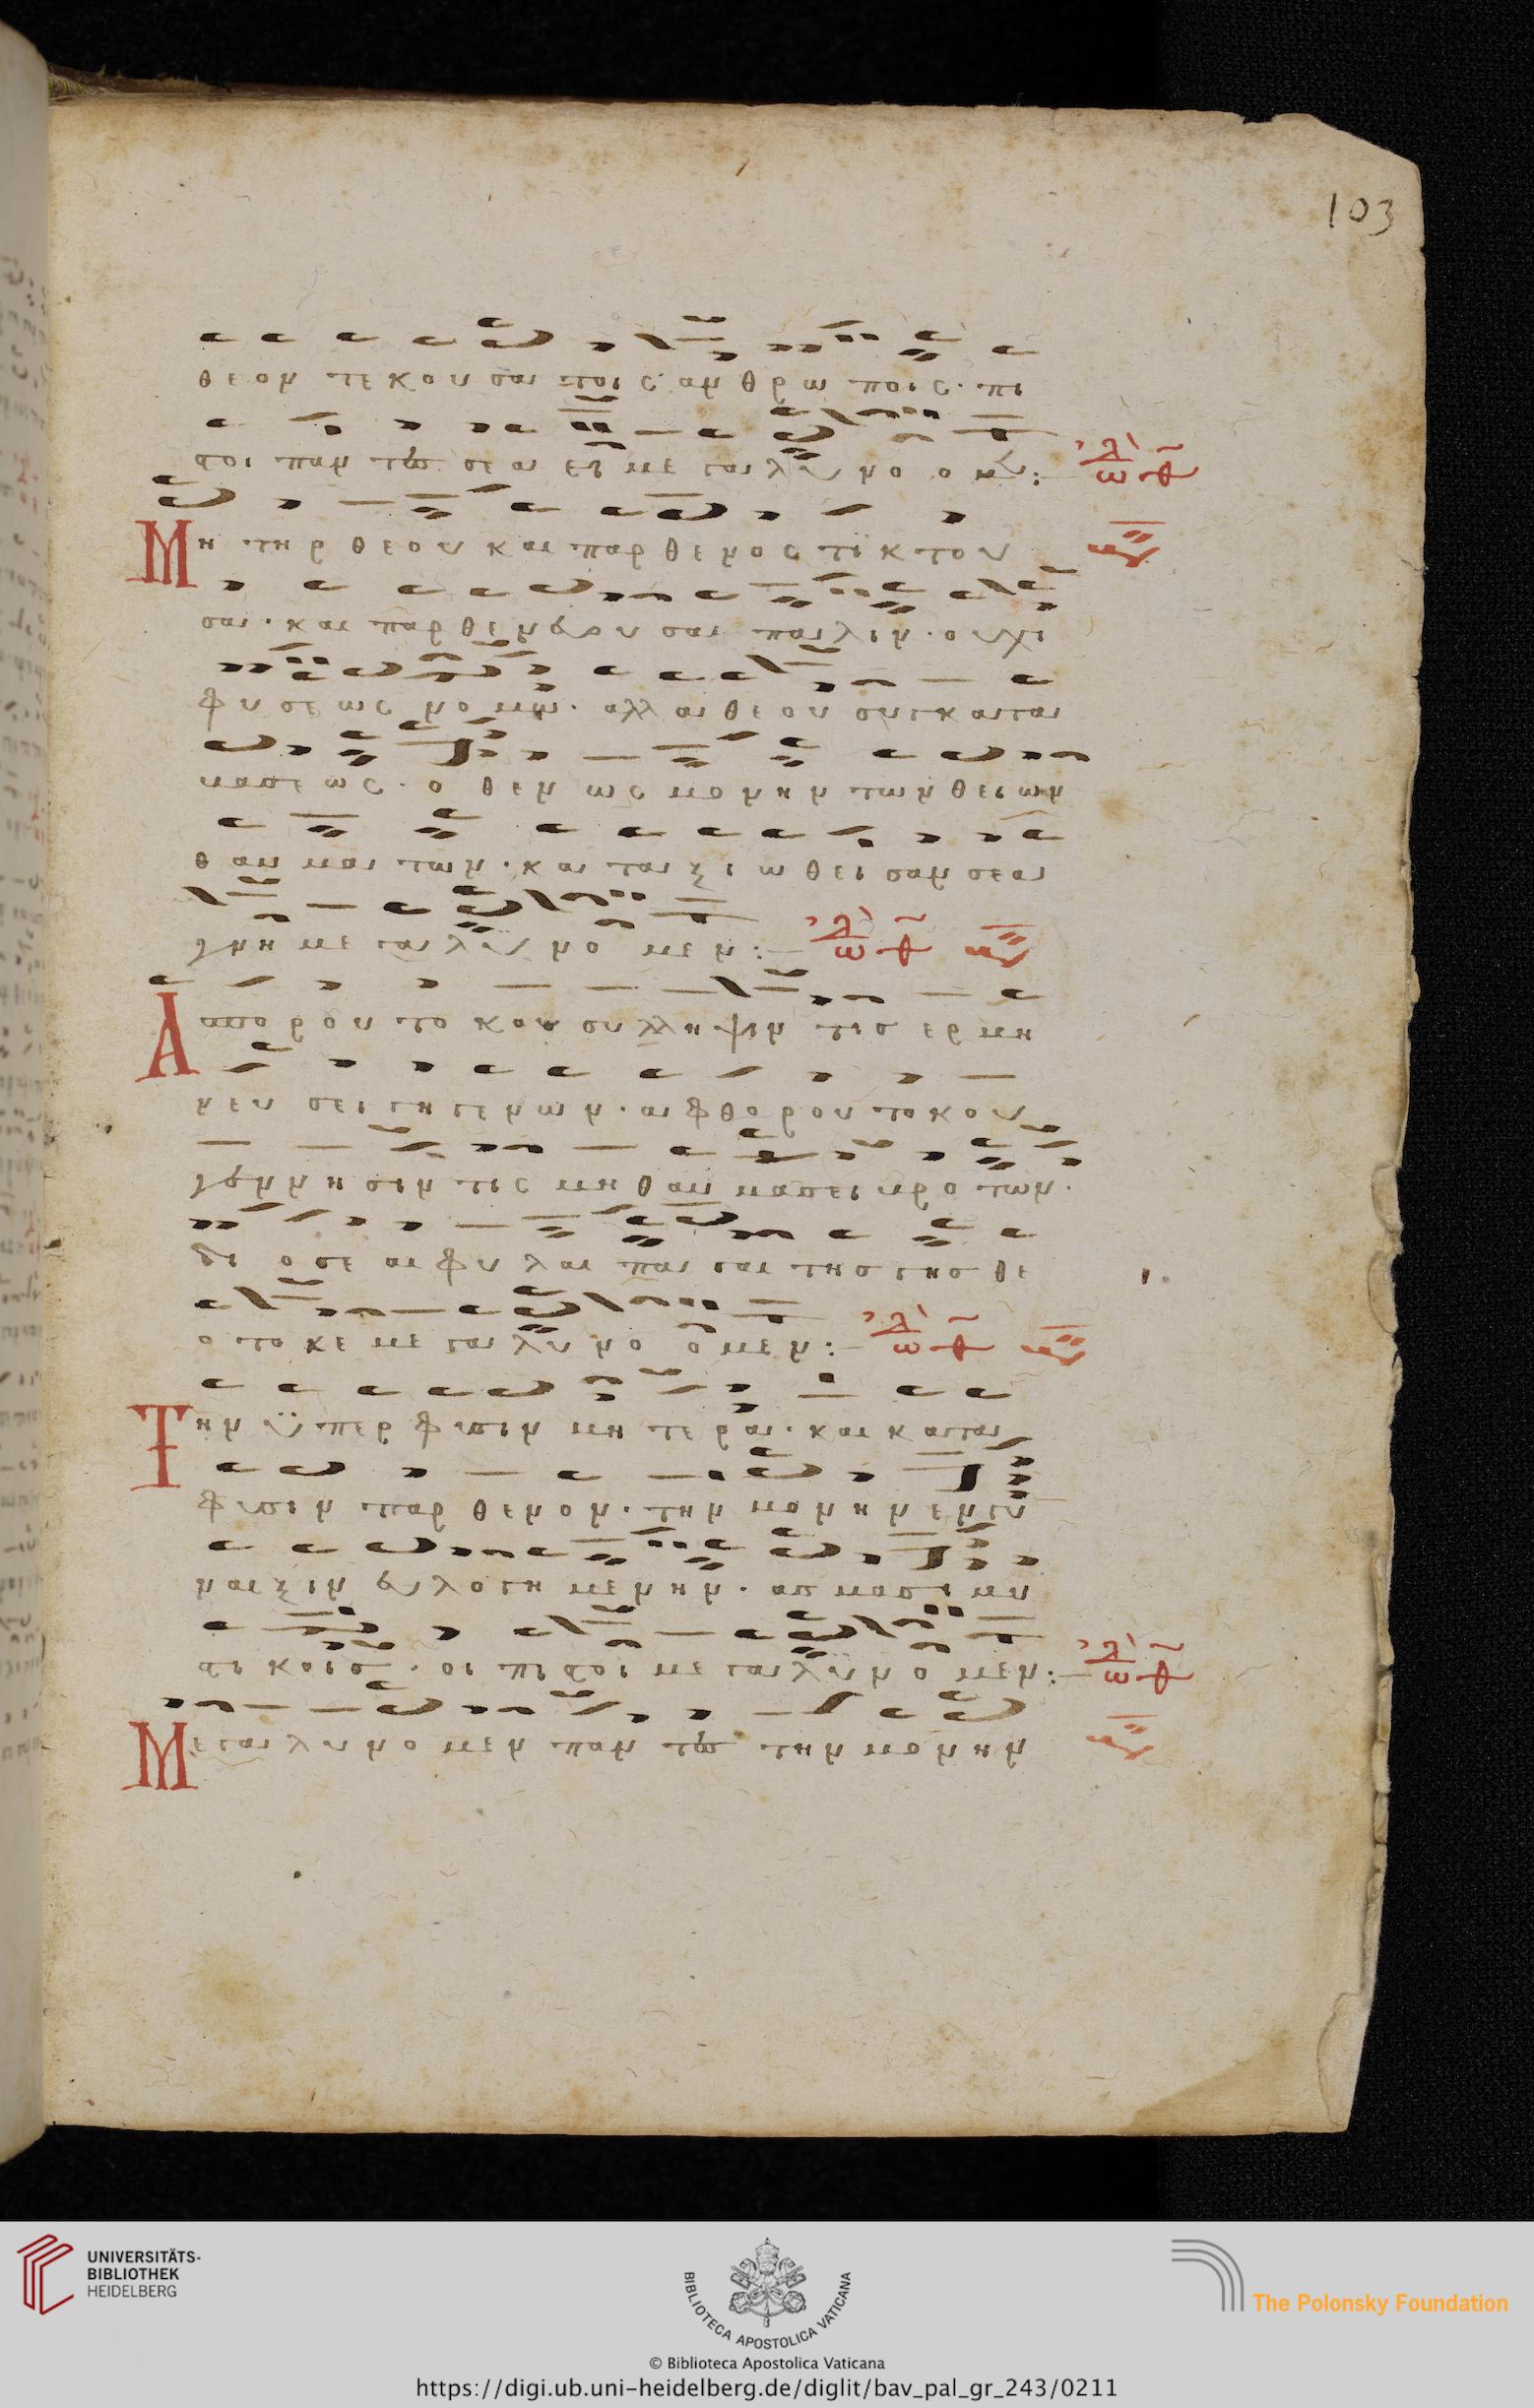 103
θεον τεκουσα τοις ανθρωποις· πι
στοι παντες σε α ει μεγαλυνο
Μητηρ θεου και παρθενος η τεκου
σα· και παρθενευουσα παλιν· ουχι
φυσεως αλλα θεου συγκατα
βασεως· οθεν ως μονην των θειων
θαυματων· καταξιωθεισαν σε α
ει μεγαλυνομεν:
Απορου τοκου συλληψιν τις ερμη
νευσει γηγενων· αφθορου τοκου
γεννησιν τις μη θαυμασει βροτων·
διο σε αι φυλαι πασαι της γης θε
οτοκε μεγαλυνομεν:
Την υπερ φυσιν μητερα· και κατα
φυσιν παρθενον· την μονην εν γυ
ναιξιν ευλογημενην· ασμασι μυ
στικοις· οι πιστοι μεγαλυνομεν:
Μεγαλυνομεν παντες την μονην
UNIVERSITÄTS-
BIBLIOTHEK
HEIDELBERG
BIBLIOTECA APOSTOLICA VATICANA
The Polonsky Foundation
© Biblioteca Apostolica Vaticana
https://digi.ub.uni-heidelberg.de/diglit/bav_pal_gr_243/0211